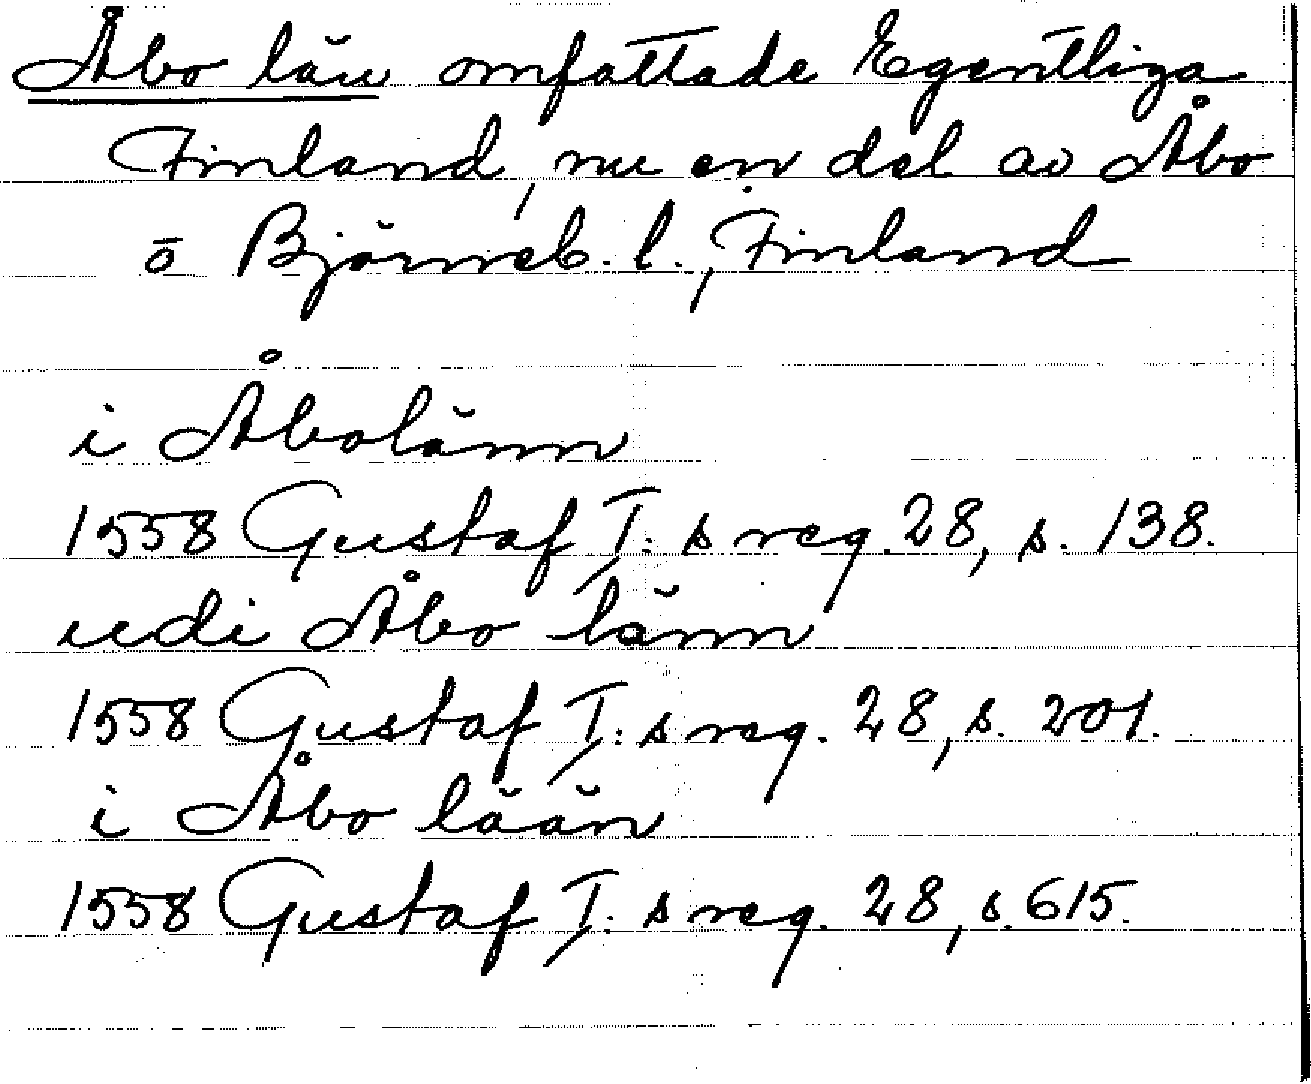 Åbo län omfattade Egentliga
Finland, nu en del av Åbo
o Björneb. l., Finland
i Åbolänn
1558 Gustaf I:s reg. 28, s. 138.
udi Åbo länn
1558 Gustaf I:s reg. 28, s. 201.
i Åbo lään
1558 Gustaf I:s reg. 28, s. 615.